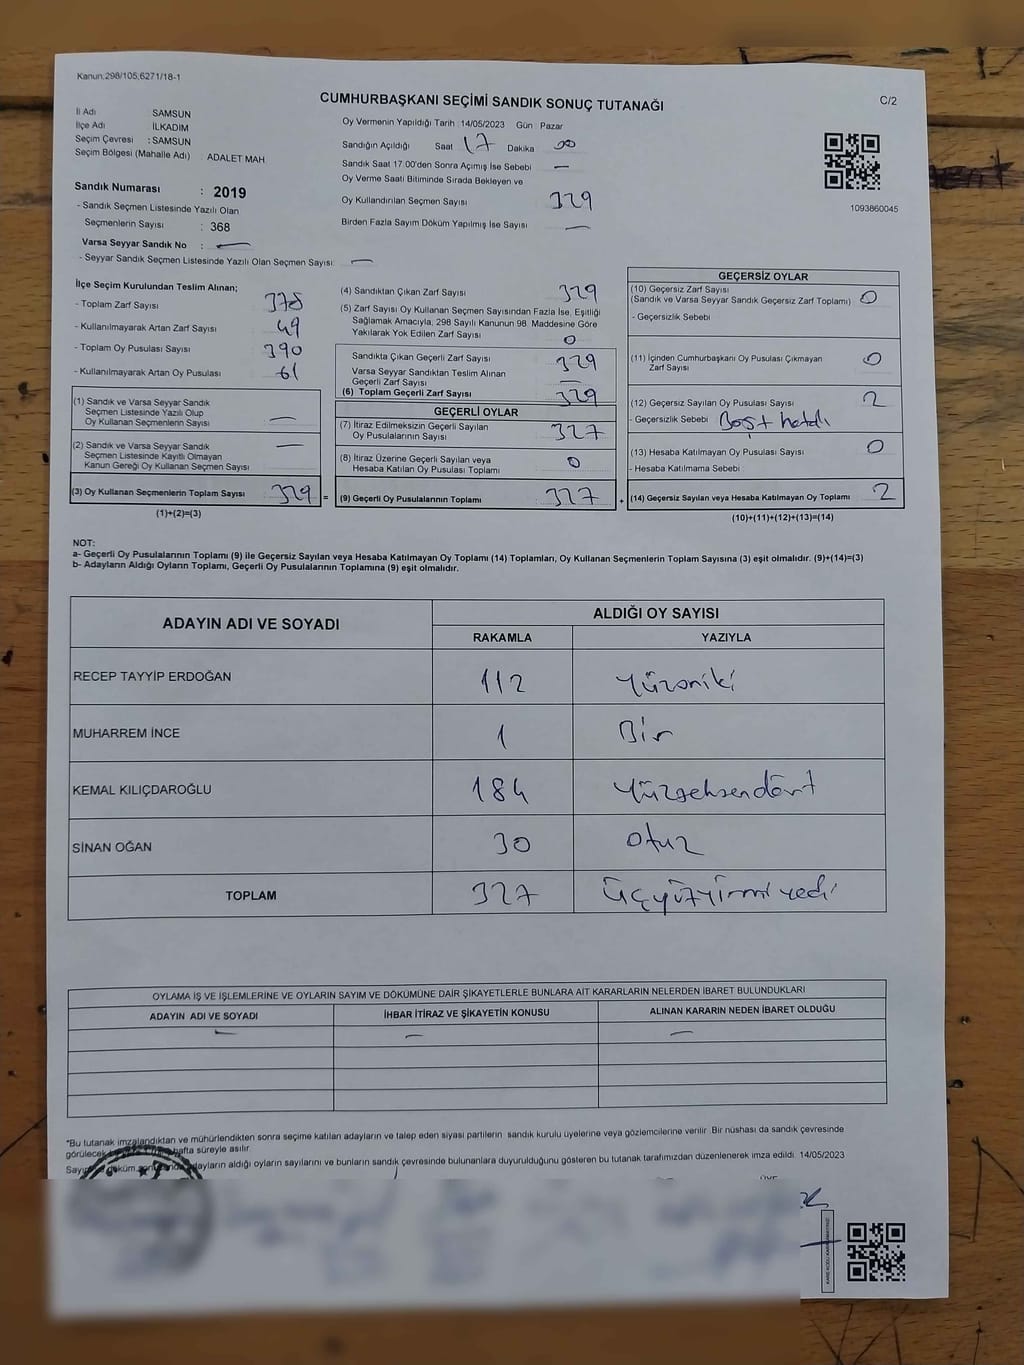 Kanun.298/105;6271/18-1
C/2
CUMHURBAŞKANI SEÇİMİ SANDIK SONUÇ TUTANAĞI
İl Adı SAMSUN
İlçe Adı İLKADIM
Seçim Çevresi : SAMSUN
Seçim Bölgesi (Mahalle Adı) : ADALET MAH
Sandık Numarası : 2019
- Sandık Seçmen Listesinde Yazılı Olan
Seçmenlerin Sayısı : 368
Varsa Seyyar Sandık No : —
- Seyyar Sandık Seçmen Listesinde Yazılı Olan Seçmen Sayısı: —
Oy Vermenin Yapıldığı Tarih :14/05/2023 Gün : Pazar
Sandığın Açıldığı Saat 17 Dakika 00
Sandık Saat 17:00'den Sonra Açımış İse Sebebi —
Oy Verme Saati Bitiminde Sırada Bekleyen ve
Oy Kullandırılan Seçmen Sayısı 329
Birden Fazla Sayım Döküm Yapılmış İse Sayısı —
1093860045
İlçe Seçim Kurulundan Teslim Alınan;
- Toplam Zarf Sayısı 378
- Kullanılmayarak Artan Zarf Sayısı 49
- Toplam Oy Pusulası Sayısı 390
- Kullanılmayarak Artan Oy Pusulası 61
(1) Sandık ve Varsa Seyyar Sandık
Seçmen Listesinde Yazılı Olup
Oy Kullanan Seçmenlerin Sayısı —
(2) Sandık ve Varsa Seyyar Sandık —
Seçmen Listesinde Kayıtlı Olmayan
Kanun Gereği Oy Kullanan Seçmen Sayısı
(3) Oy Kullanan Seçmenlerin Toplam Sayısı 329 =
(1)+(2)=(3)
(4) Sandıktan Çıkan Zarf Sayısı 329
(5) Zarf Sayısı Oy Kullanan Seçmen Sayısından Fazla İse, Eşitliği
Sağlamak Amacıyla, 298 Sayılı Kanunun 98. Maddesine Göre
Yakılarak Yok Edilen Zarf Sayısı 0
Sandıkta Çıkan Geçerli Zarf Sayısı 329
Varsa Seyyar Sandıktan Teslim Alınan
Geçerli Zarf Sayısı —
(6) Toplam Geçerli Zarf Sayısı 329
GEÇERLİ OYLAR
(7) İtiraz Edilmeksizin Geçerli Sayılan
Oy Pusulalarının Sayısı 327
(8) İtiraz Üzerine Geçerli Sayılan veya
Hesaba Katılan Oy Pusulası Toplamı 0
(9) Geçerli Oy Pusulalarının Toplamı 327 +
GEÇERSİZ OYLAR
(10) Geçersiz Zarf Sayısı
(Sandık ve Varsa Seyyar Sandık Geçersiz Zarf Toplamı) 0
- Geçersizlik Sebebi
(11) İçinden Cumhurbaşkanı Oy Pusulası Çıkmayan
Zarf Sayısı 0
(12) Geçersiz Sayılan Oy Pusulası Sayısı 2
- Geçersizlik Sebebi Boş + hatalı
(13) Hesaba Katılmayan Oy Pusulası Sayısı 0
- Hesaba Katılmama Sebebi
(14) Geçersiz Sayılan veya Hesaba Katılmayan Oy Toplamı 2
(10)+(11)+(12)+(13)=(14)
NOT:
a- Geçerli Oy Pusulalarının Toplamı (9) ile Geçersiz Sayılan veya Hesaba Katılmayan Oy Toplamı (14) Toplamları, Oy Kullanan Seçmenlerin Toplam Sayısına (3) eşit olmalıdır. (9)+(14)=(3)
b- Adayların Aldığı Oyların Toplamı, Geçerli Oy Pusulalarının Toplamına (9) eşit olmalıdır.
ADAYIN ADI VE SOYADI
ALDIĞI OY SAYISI
RAKAMLA YAZIYLA
RECEP TAYYİP ERDOĞAN 112 Yüzoniki
MUHARREM İNCE 1 Bir
KEMAL KILIÇDAROĞLU 184 Yüzseksendört
SİNAN OĞAN 30 otuz
TOPLAM 327 Üçyüzyirmiyedi
OYLAMA İŞ VE İŞLEMLERİNE VE OYLARIN SAYIM VE DÖKÜMÜNE DAİR ŞİKAYETLERLE BUNLARA AİT KARARLARIN NELERDEN İBARET BULUNDUKLARI
ADAYIN ADI VE SOYADI İHBAR İTİRAZ VE ŞİKAYETİN KONUSU ALINAN KARARIN NEDEN İBARET OLDUĞU
— — —
*Bu tutanak imzalandıktan ve mühürlendikten sonra seçime katılan adayların ve talep eden siyasi partilerin sandık kurulu üyelerine veya gözlemcilerine verilir. Bir nüshası da sandık çevresinde
görülecek hafta süreyle asılır.
adayların aldığı oyların sayılarını ve bunların sandık çevresinde bulunanlara duyurulduğunu gösteren bu tutanak tarafımızdan düzenlenerek imza edildi. 14/05/2023